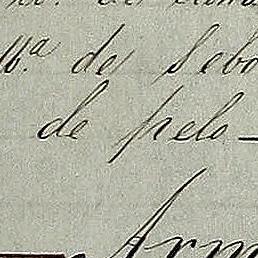 de Sebo
de pelo –
Arm